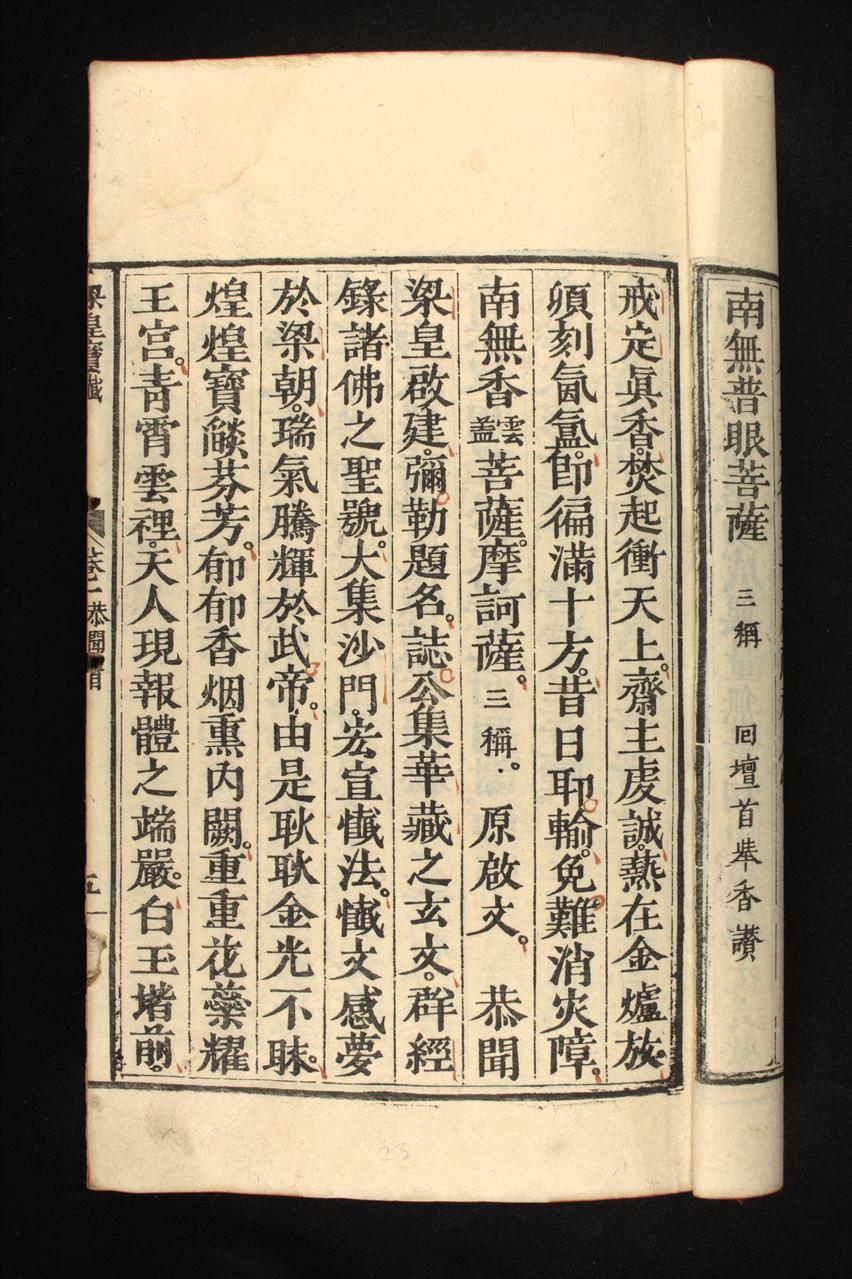 南無普眼菩薩 三稱 回壇首舉香讚
戒定眞香。焚起衝天上。齋主虔誠。爇在金爐放。
頃刻氤氳。卽徧滿十方。昔日耶輸。免難消灾障。
南無香雲蓋菩薩。摩訶薩。三稱。 原啟文。 恭聞
梁皇啟建。彌勒題名。誌公集華藏之玄文。群經
錄諸佛之聖號。大集沙門。宏宣懴法。懴文感夢
於梁朝。瑞氣騰輝於武帝。由是耿耿金光不昧。
煌煌寶燄芬芳。郁郁香烟熏內闕。重重花蘂耀
王宫。靑霄雲裡。天人現報體之端嚴。白玉堦前。
梁皇寶懴 卷一 恭聞 五